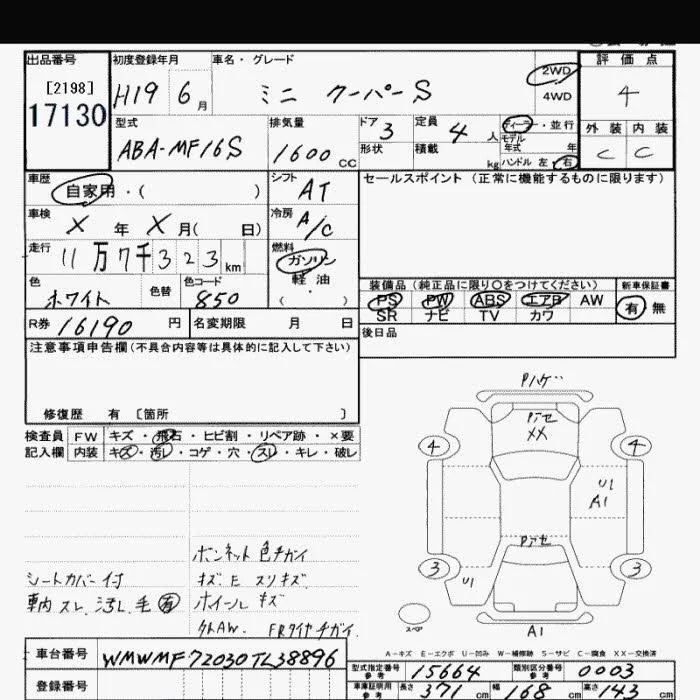 出品番号 初度登録年月 車名・グレード 2WD 評価点
[2198] H19 6月 ミニ クーパーS 4WD 4
17130
型式 排気量 ドア 3 定員 4 人 ディーラー・並行 外装 内装
ABA-MF16S 1600 CC 形状 積載 kg モデル年式 年 C C
ハンドル 左 右
車歴 自家用・( ) シフト AT セールスポイント (正常に機能するものに限ります)
車検 X 年 X 月( 日) 冷房 A/C
走行 11万7千323km 燃料 ガソリン
軽油
( )
色 ホワイト 色替 色コード 850
装備品(純正品に限り○をつけてください) 新車保証書
PS PW ABS エアB AW 有 無
SR ナビ TV カワ
R券 16190 円 名変期限 月 日 後日品
注意事項申告欄(不具合内容等は具体的に記入して下さい)
修復歴 有 〔箇所 〕
検査員 FW キズ・飛石・ヒビ割・リペア跡・×要
記入欄 内装 キズ・汚レ・コゲ・穴・スレ・キレ・破レ
Pハゲ
Pアセ
XX
4 4
U1
A1
Pアセ
3 3
U1
スペア
A1
ボンネット色チガイ
シートカバー付 キズE スリキズ
車内 スレ、汚レ、毛 有 ホイールキズ
外AW. FRタイヤチガイ.
A-キズ E-エクボ U-凹み W-補修跡 S-サビ C-腐食 XX-交換済
車台番号 WMWMF72030TL38896
登録番号
型式指定番号 参考 15664 類別区分番号 参考 0003
車庫証明用 参考 長さ 371 cm 幅 168 cm 高さ 143 cm